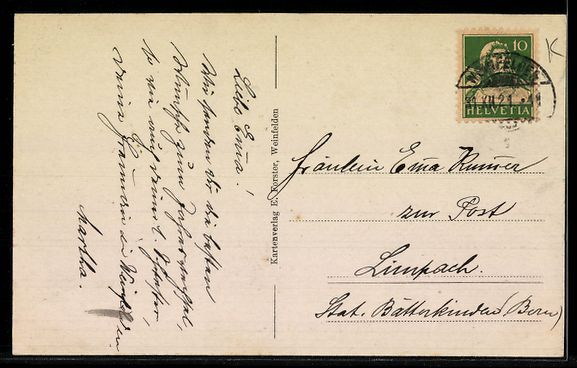 Liebe Erna!
Wir senden dir die besten
Wünsche zum Jahreswechsel,
so wie auch deine l. Schwester,
Deine Freundin in Weinfelden
Martha.
Kartenverlag E. Forster, Weinfelden
10
HELVETIA
Fräulein Erna
zur Post
Limpach.
Stat. Bätterkinden (Bern)
K